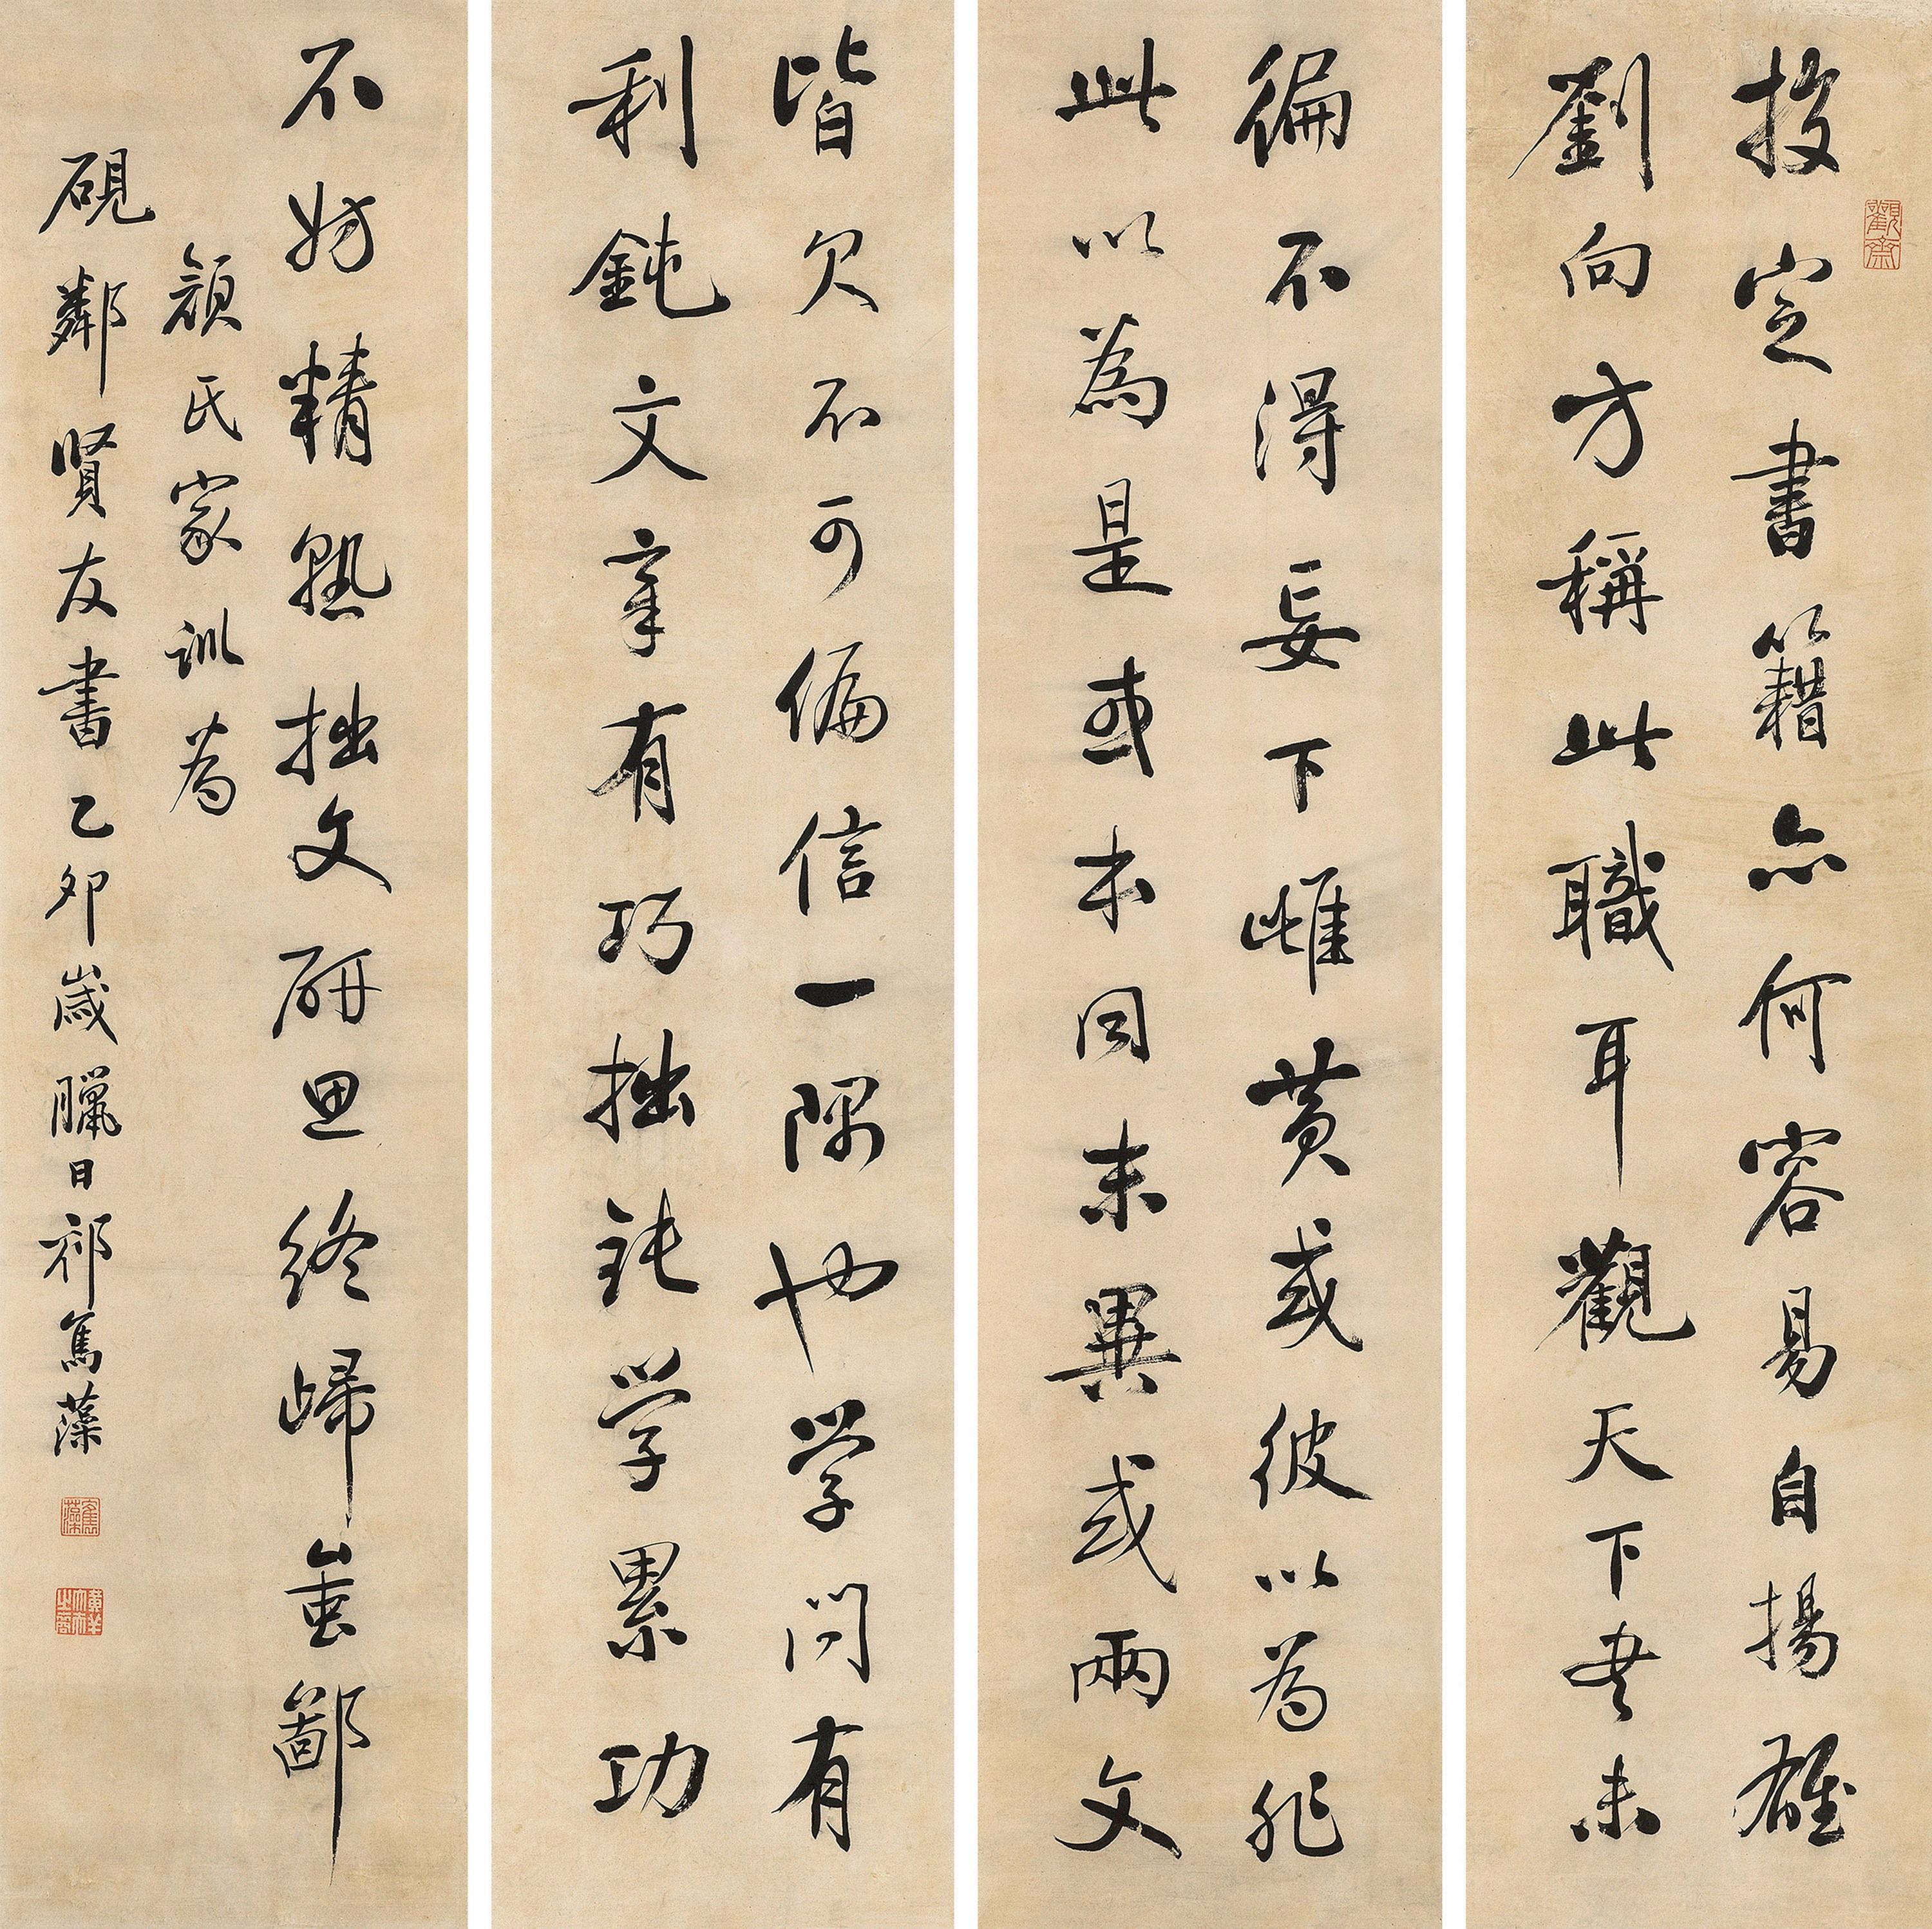 觀齋
挍定書籍亦何容易自揚雄
劉向方稱此職耳觀天下書未
徧不得妄下雌黄或彼以為非
此以為是或本同末異或兩文
皆欠不可偏信一隅也学問有
利鈍文章有巧拙鈍学累功
不妨精熟拙文研思終歸蚩鄙
顔氏家訓為
硯鄰賢友書乙卯歲臘日祁寯藻
寯藻